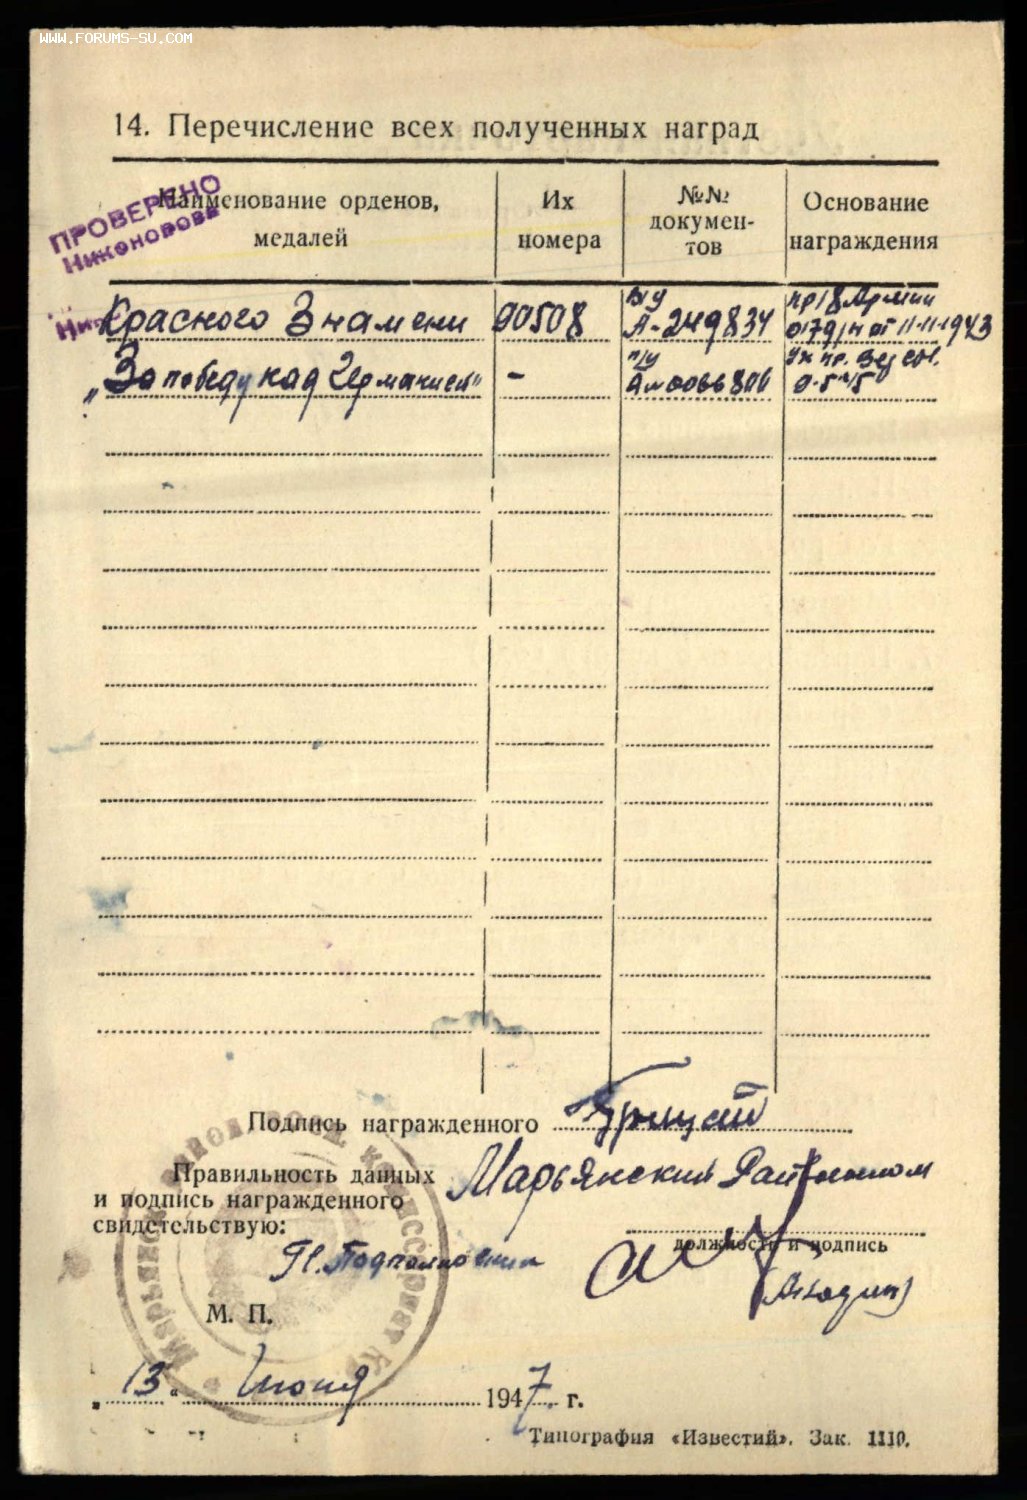 WWW.FORUMS-SU.COM
14. Перечисление всех полученных наград
ПРОВЕРЕНО
Никонорова
Наименование орденов,
медалей
Их
номера
№№
докумен-
тов
Основание
награждения
Красного Знамени
90508
в/у
А-249834
пр/8 Армии
0179/н от 11-11-1943
„За победу над Германией"
-
п/у
А№0066
Ук пр.
Подпись награжденного
Грицай
Правильность данных
и подпись награжденного
свидетельствую:
Марьянский Райвоенком
должность и подпись
Подполковник
М. П.
„13“ Июня 1947 г.
Типография «Известий». Зак. 1110.